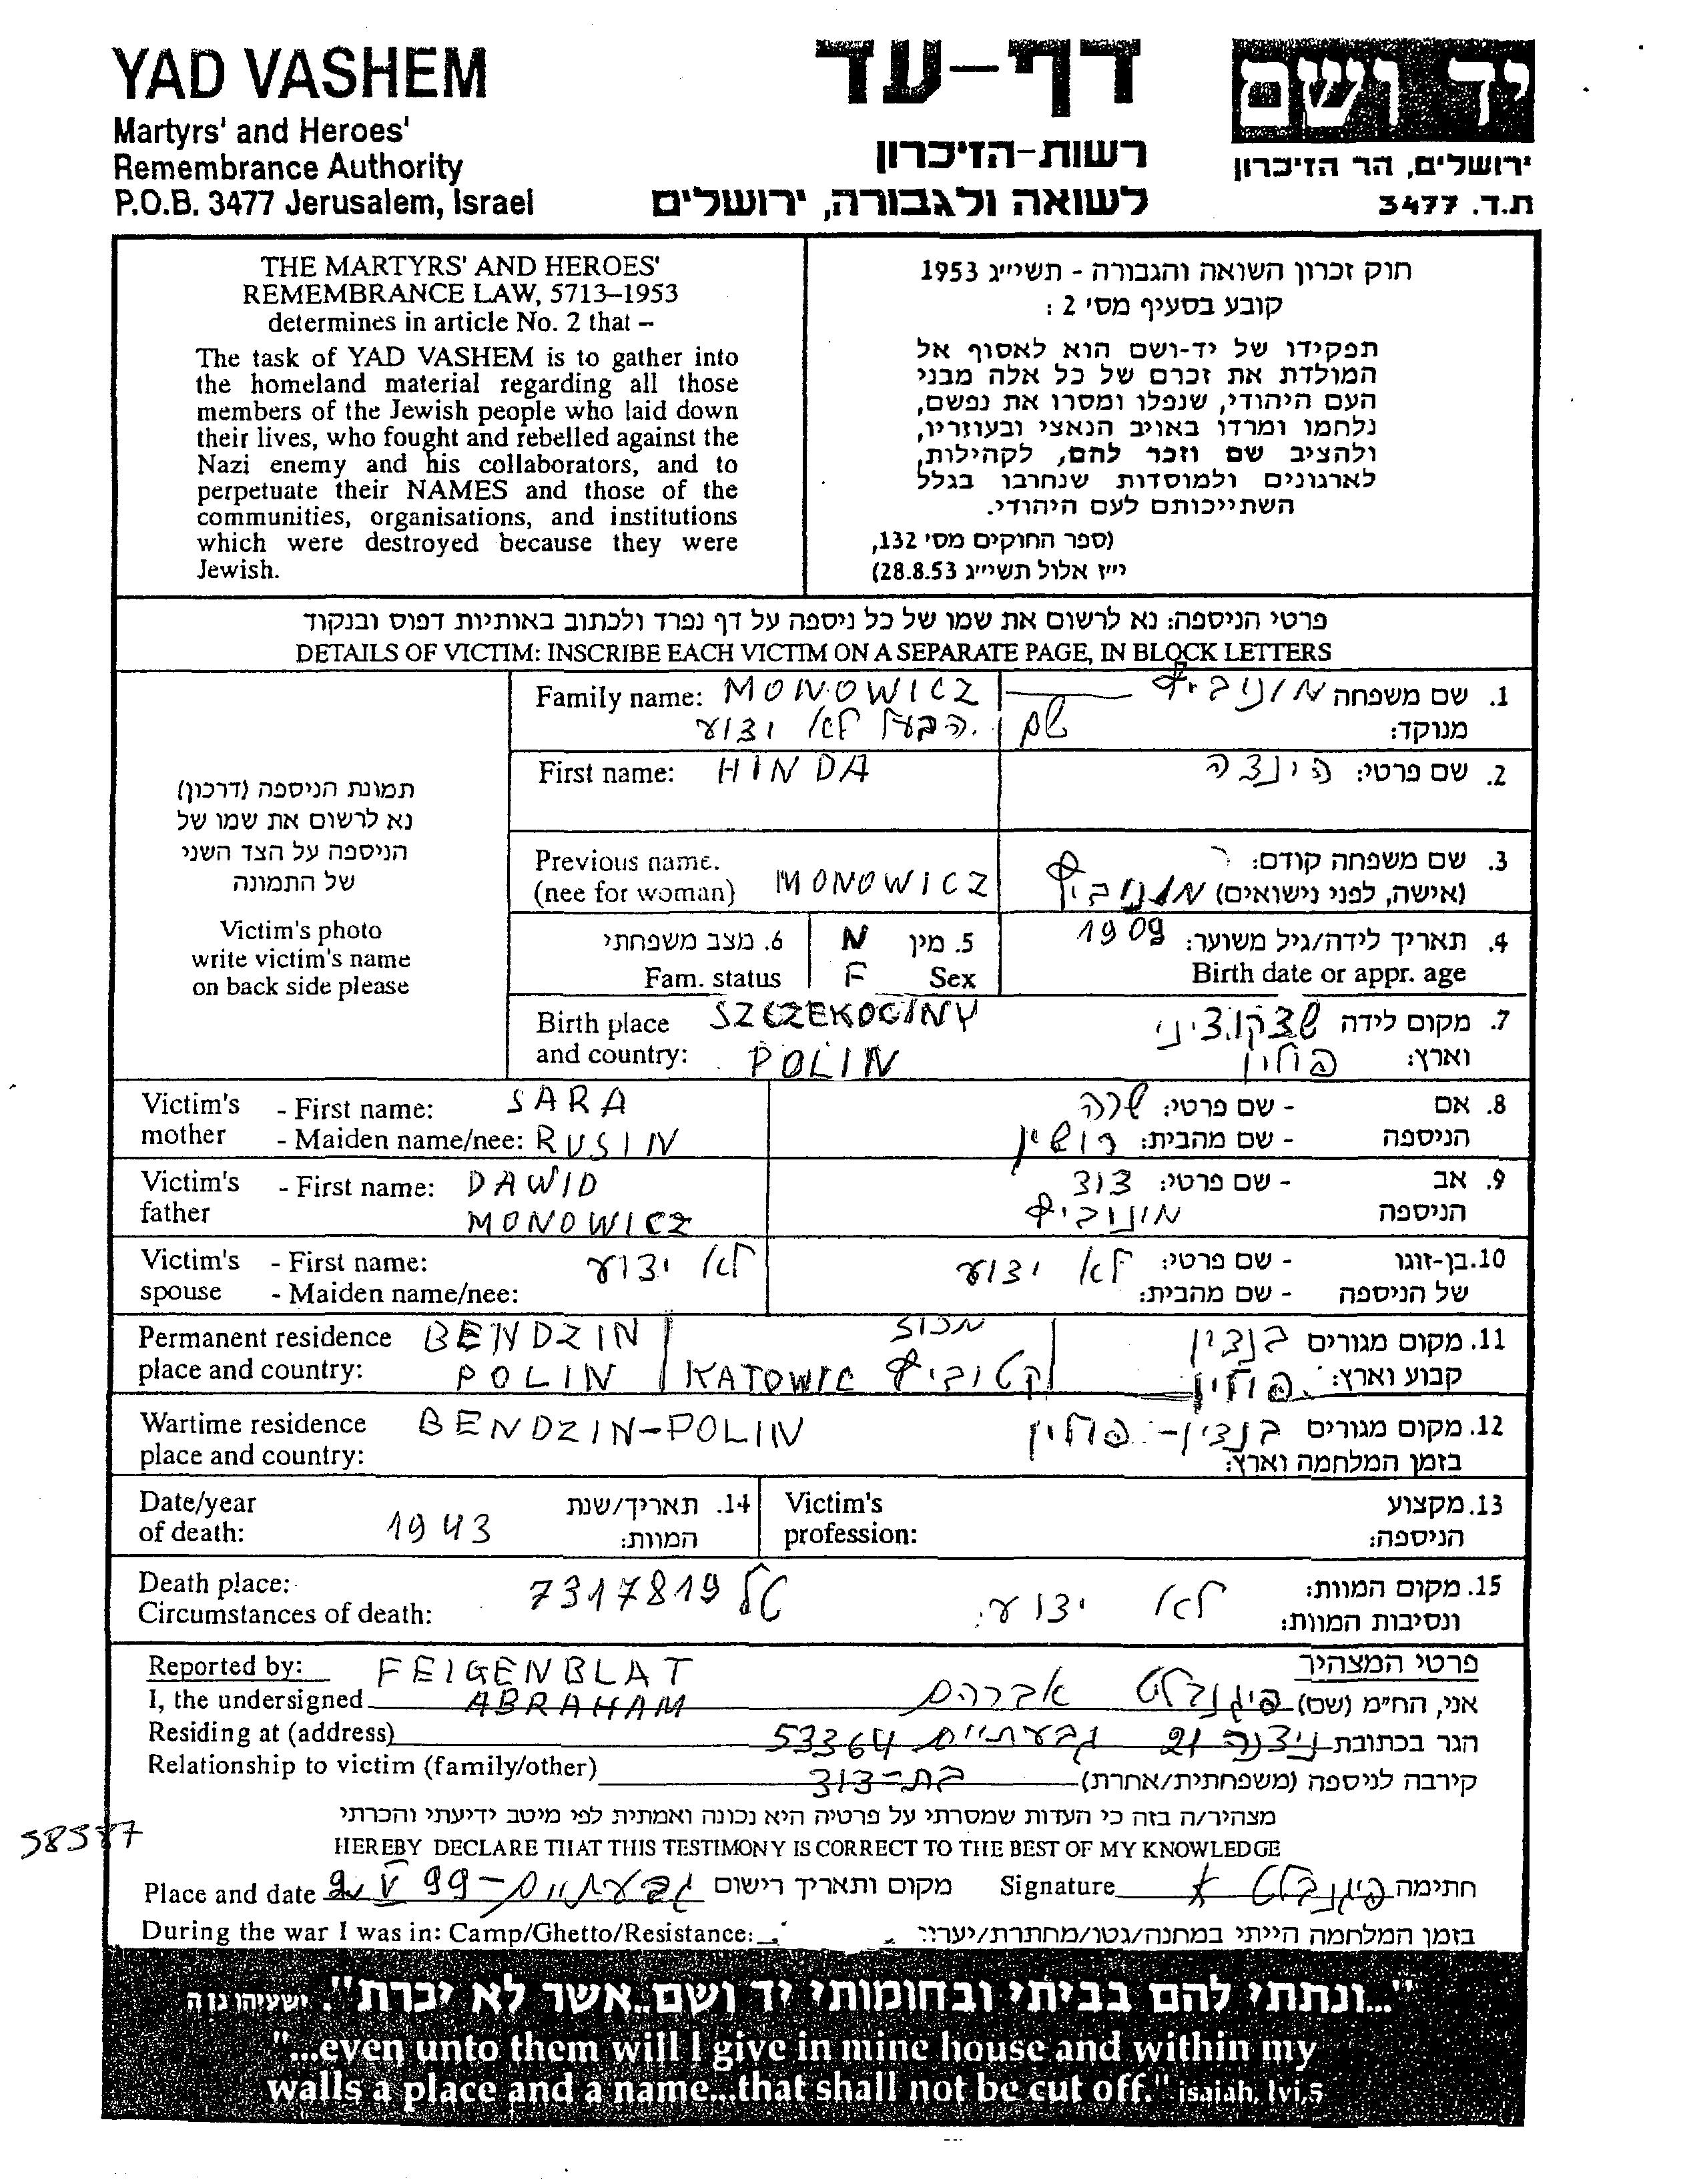 YAD VASHEM
Martyrs' and Heroes'
Remembrance Authority
P.O.B. 3477 Jerusalem, Israel
דף-עד
רשות-הזיכרון
לשואה ולגבורה, ירושלים
יד ושם
ירושלים, הר הזיכרון
ת.ד. 3477
THE MARTYRS' AND HEROES'
REMEMBRANCE LAW, 5713–1953
determines in article No. 2 that –
The task of YAD VASHEM is to gather into
the homeland material regarding all those
members of the Jewish people who laid down
their lives, who fought and rebelled against the
Nazi enemy and his collaborators, and to
perpetuate their NAMES and those of the
communities, organisations, and institutions
which were destroyed because they were
Jewish.
חוק זכרון השואה והגבורה - תשי״ג 1953
קובע בסעיף מס׳ 2 :
תפקידו של יד-ושם הוא לאסוף אל
המולדת את זכרם של כל אלה מבני
העם היהודי, שנפלו ומסרו את נפשם,
נלחמו ומרדו באויב הנאצי ובעוזריו,
ולהציב שם וזכר להם, לקהילות,
לארגונים ולמוסדות שנחרבו בגלל
השתייכותם לעם היהודי.
(ספר החוקים מס׳ 132,
י״ז אלול תשי״ג 28.8.53)
פרטי הניספה: נא לרשום את שמו של כל ניספה על דף נפרד ולכתוב באותיות דפוס ובנקוד
DETAILS OF VICTIM: INSCRIBE EACH VICTIM ON A SEPARATE PAGE, IN BLOCK LETTERS
תמונת הניספה (דרכון)
נא לרשום את שמו של
הניספה על הצד השני
של התמונה
Victim's photo
write victim's name
on back side please
Family name: MONOWICZ
1. שם משפחה מוניביץ
מנוקד:
שם הבעל לא ידוע
First name: HINDA
2. שם פרטי: הינדה
Previous name.
(nee for woman) MONOWICZ
3. שם משפחה קודם:
(אישה, לפני נישואים) מונוביץ
4. תאריך לידה/גיל משוער: 1909
Birth date or appr. age
5. מין נ
Sex F
6. מצב משפחתי
Fam. status
Birth place SZCZEKOCINY
and country: POLIN
7. מקום לידה שצקוציני
וארץ: פולין
Victim's - First name: SARA
mother - Maiden name/nee: RUSIN
8. אם - שם פרטי: שרה
הניספה - שם מהבית: רושין
Victim's - First name: DAWID
father MONOWICZ
9. אב - שם פרטי: דוד
הניספה מונוביץ
Victim's - First name: לא ידוע
spouse - Maiden name/nee:
10. בן-זוגו - שם פרטי: לא ידוע
של הניספה - שם מהבית:
Permanent residence BENDZIN
place and country: POLIN KATOWIC
11. מקום מגורים בנדין
קבוע וארץ: פולין
מחוז
קטוביץ
Wartime residence BENDZIN-POLIN
place and country:
12. מקום מגורים בנדין - פולין
בזמן המלחמה וארץ:
Date/year
of death: 1943
14. תאריך/שנת
המוות:
Victim's
profession:
13. מקצוע
הניספה:
Death place:
Circumstances of death:
טל 7317819
15. מקום המוות: לא ידוע
ונסיבות המוות:
Reported by: FEIGENBLAT
I, the undersigned ABRAHAM
פרטי המצהיר
אני, הח״מ (שם) פיגנבלט אברהם
Residing at (address)
הגר בכתובת ניצנה 21 גבעתיים 53364
Relationship to victim (family/other)
קירבה לניספה (משפחתית/אחרת) בת-דוד
מצהיר/ה בזה כי העדות שמסרתי על פרטיה היא נכונה ואמתית לפי מיטב ידיעתי והכרתי
58587
HEREBY DECLARE THAT THIS TESTIMONY IS CORRECT TO THE BEST OF MY KNOWLEDGE
Place and date 2. V 99 - גבעתיים מקום ותאריך רישום Signature פיגנבלט חתימה
During the war I was in: Camp/Ghetto/Resistance:
בזמן המלחמה הייתי במחנה/גטו/מחתרת/יערי:
"...ונתתי להם בביתי ובחומותי יד ושם..אשר לא יכרת". ישעיהו נו ה
"...even unto them will I give in mine house and within my
walls a place and a name...that shall not be cut off." isaiah, lvi,5